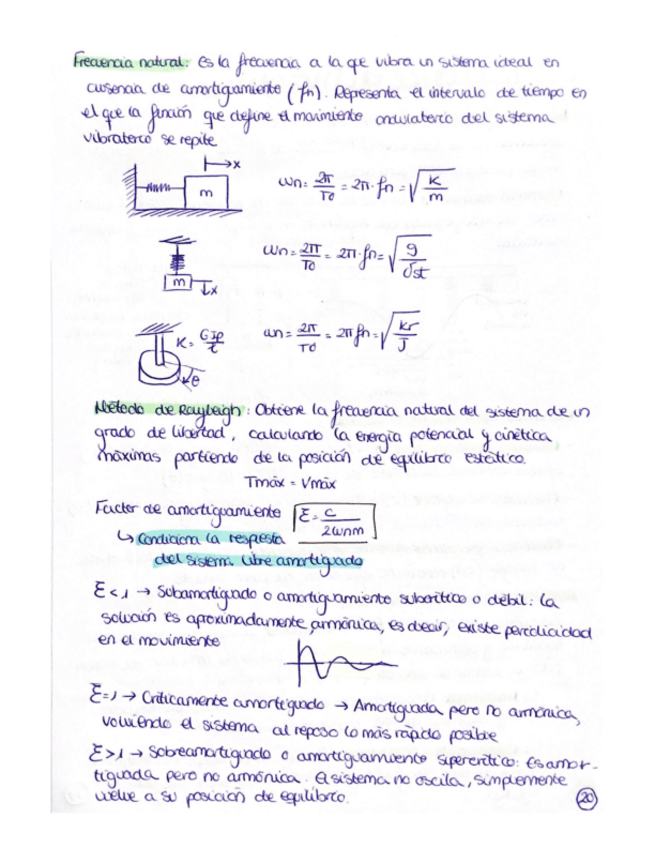 Frecuencia natural: Es la frecuencia a la que vibra un sistema ideal en
ausencia de amortiguamiento (fn). Representa el intervalo de tiempo en
el que la función que define el movimiento ondulatorio del sistema
vibratorio se repite
x
m
ωn = 2π/T0 = 2π·fn = √(K/m)
m
x
ωn = 2π/T0 = 2π·fn = √(g/δst)
K = GIp/l
θ
ωn = 2π/T0 = 2πfn = √(Kr/J)
Método de Rayleigh: Obtiene la frecuencia natural del sistema de un
grado de libertad, calculando la energía potencial y cinética
máximas partiendo de la posición de equilibrio estático.
Tmáx = Vmáx
Factor de amortiguamiento ξ = c/2ωnm
↳ Condiciona la respuesta
del sistema libre amortiguado
ξ<1 → Subamortiguado o amortiguamiento subcrítico o débil: La
solución es aproximadamente armónica, es decir, existe periodicidad
en el movimiento
ξ=1 → Críticamente amortiguado → Amortiguada pero no armónica,
volviendo el sistema al reposo lo más rápido posible
ξ>1 → Sobreamortiguado o amortiguamiento supercrítico: Es amor-
tiguada pero no armónica. El sistema no oscila, simplemente
vuelve a su posición de equilibrio.
20